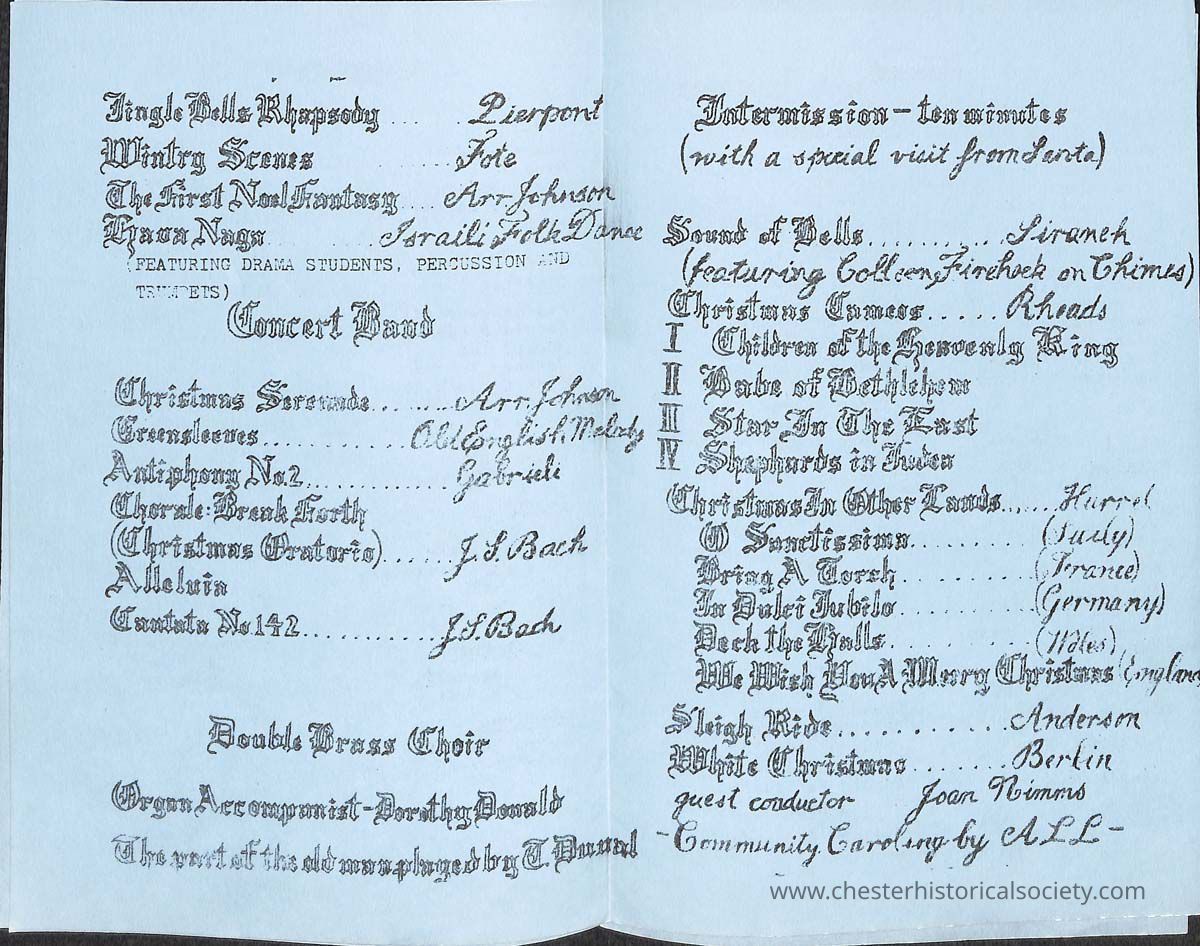 Jingle Bells Rhapsody .... . Pierpont
Wintry Scenes ....... Fote
The First Noel Fantasy .... Arr Johnson
Hava Naga ....... Israili Folk Dance
(FEATURING DRAMA STUDENTS, PERCUSSION AND
TRUMPETS)
Concert Band
Christmas Serenade......... Arr. Johnson
Greensleeves............. Old English Melody
Antiphony No.2............. Gabrieli
Chorale: Break Forth
(Christmas Oratorio)...... J.S. Bach
Alleluia
Cantata No 142............ J.S. Bach
Double Brass Choir
Organ Accompanist - Dorothy Donald
The part of the old man played by T.
Intermission - ten minutes
(with a special visit from Santa)
Sound of Bells........... Siranek
(featuring Colleen Firehock on Chimes)
Christmas Cameos..... Rhoads
I Children of the Heavenly King
II Babe of Bethlehem
II Star In The East
IV Shephurds in Judea
Christmas In Other Lands......
O Sanctissima.......... 
Bring A Torch.......... (France)
In Dulci Jubilo.......... (Germany)
Deck the Halls.......... (Wales)
We Wish You A Merry Christmas (England
Sleigh Ride............. Anderson
White Christmas........ Berlin
guest conductor Joan Nimms
-Community Caroling by ALL-
www.chesterhistoricalsociety.com